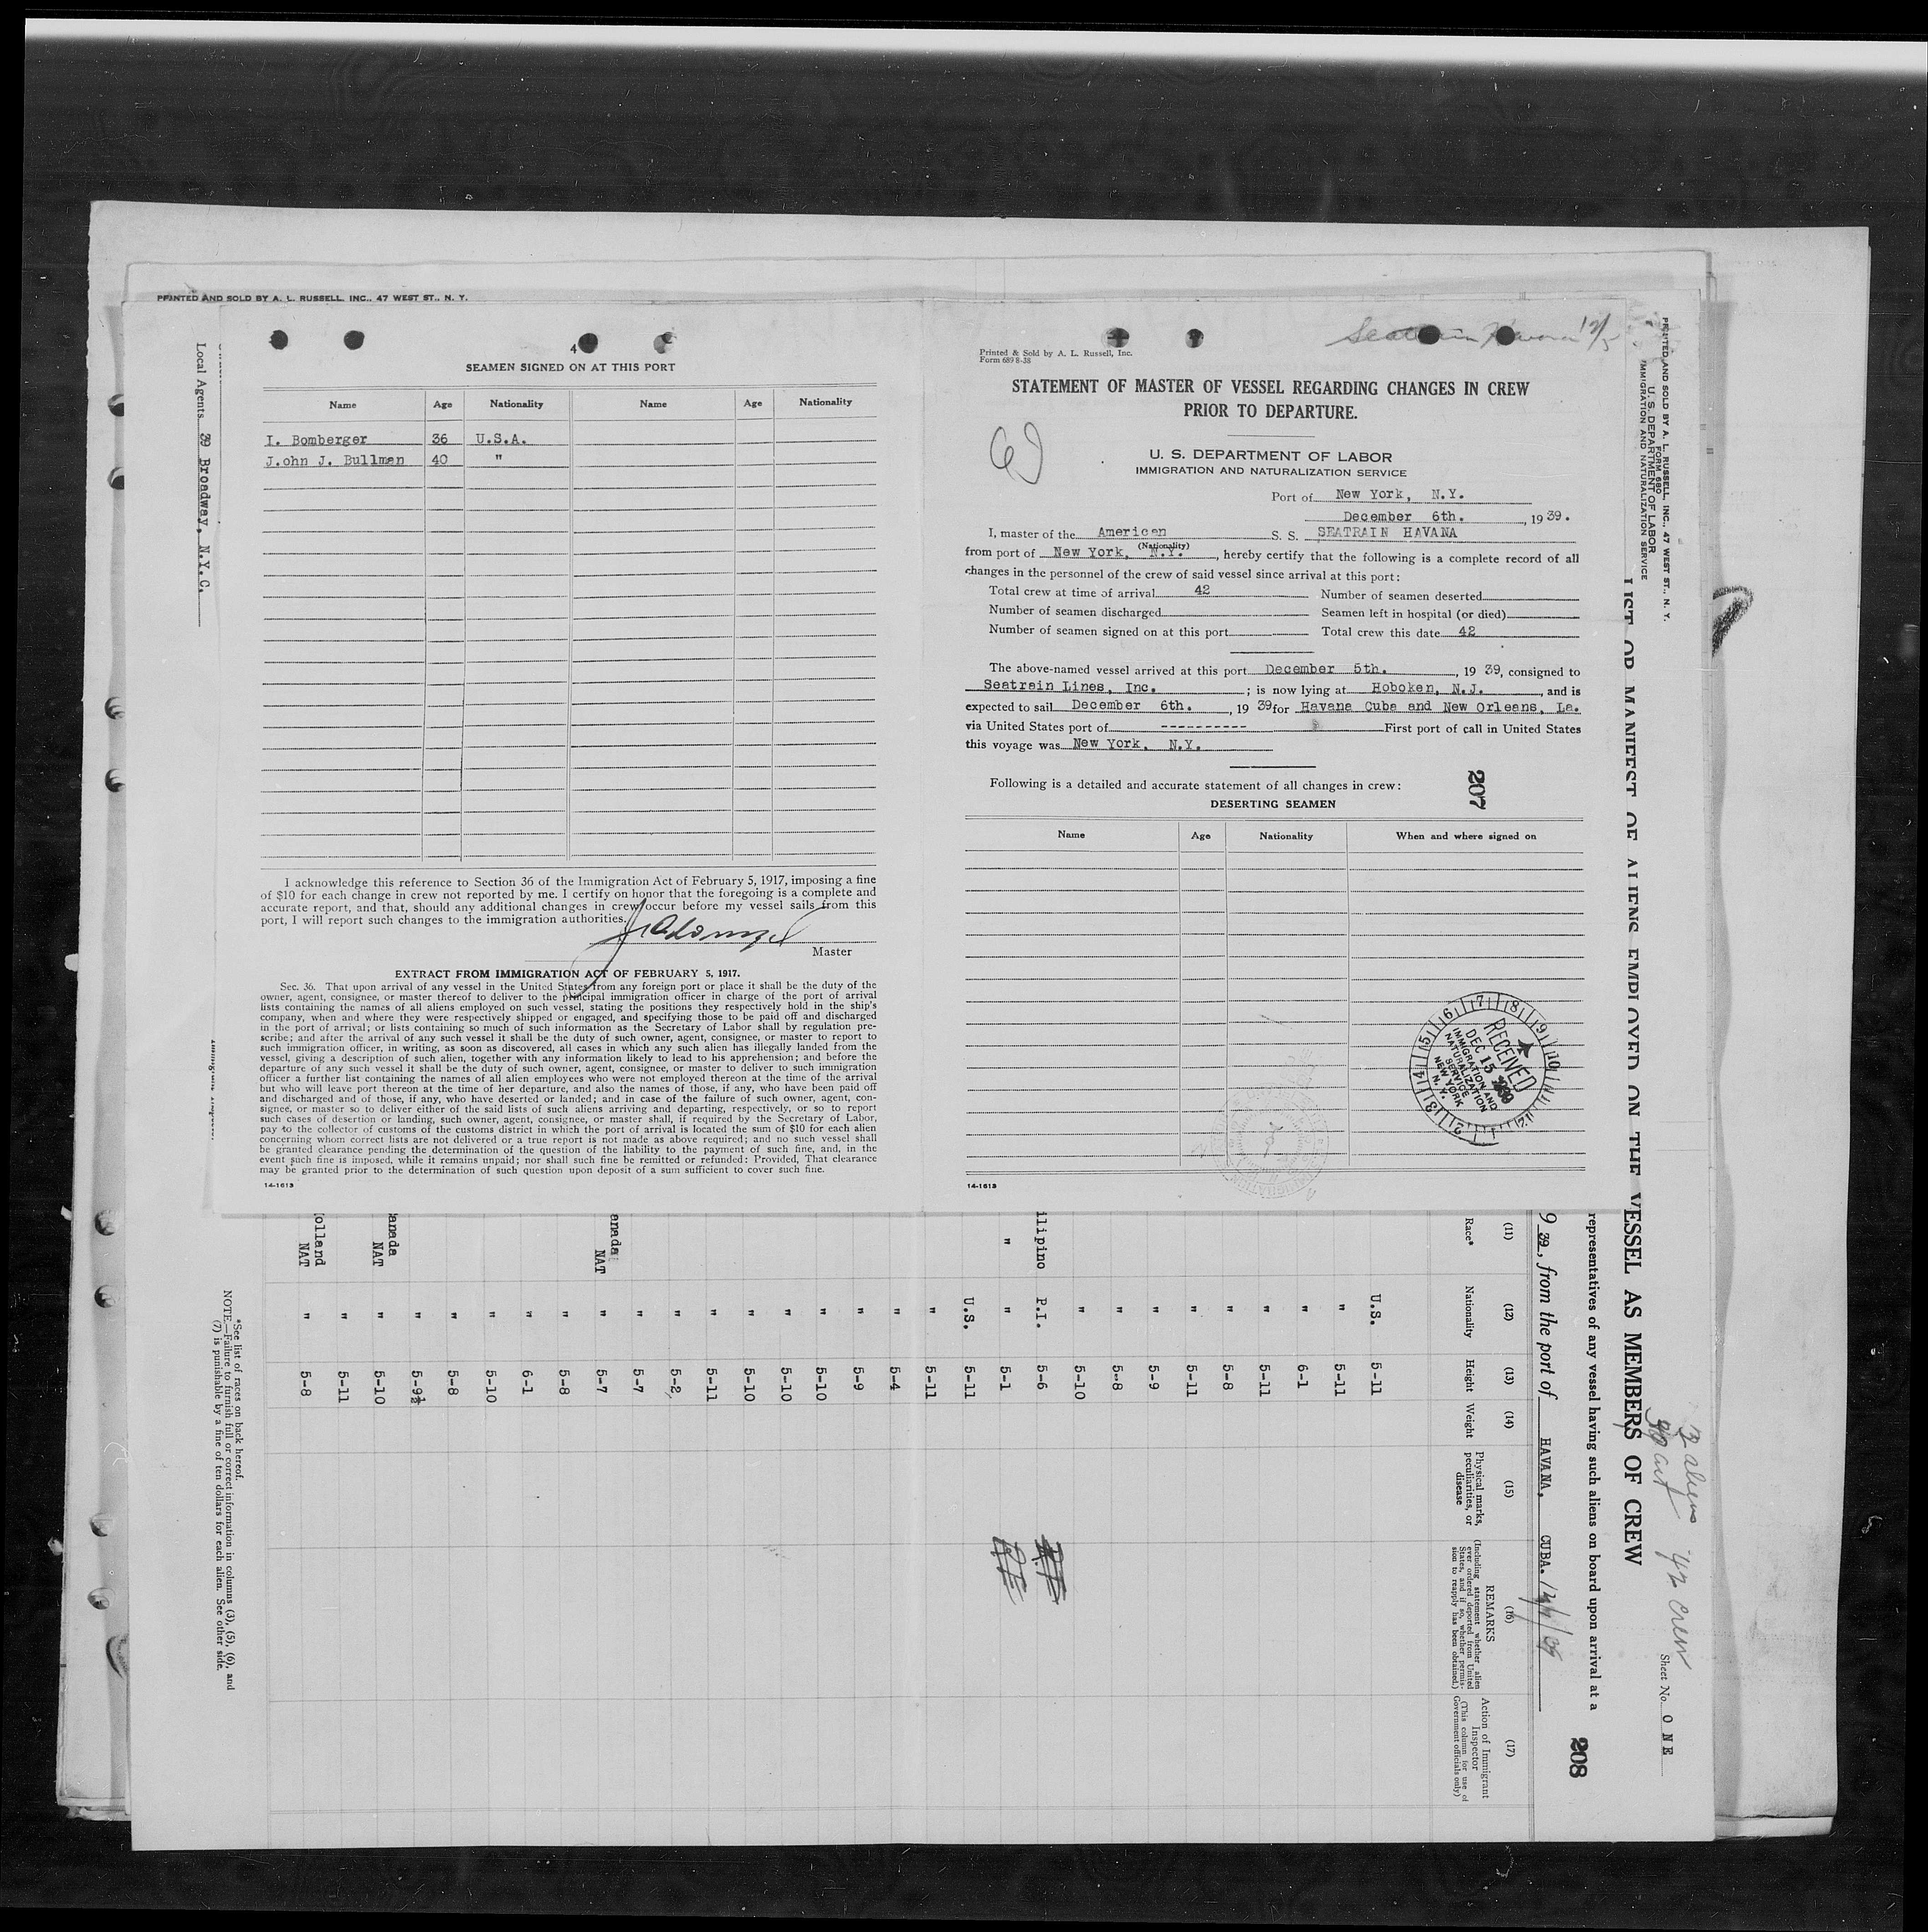 PRINTED AND SOLD BY A. L. RUSSELL, INC., 47 WEST ST., N. Y.
Local Agents 39 Broadway, N.Y.C.
4
SEAMEN SIGNED ON AT THIS PORT
Name Age Nationality Name Age Nationality
I. Bomberger 36 U.S.A.
J.ohn J. Bullman 40 "
I acknowledge this reference to Section 36 of the Immigration Act of February 5, 1917, imposing a fine
of $10 for each change in crew not reported by me. I certify on honor that the foregoing is a complete and
accurate report, and that, should any additional changes in crew occur before my vessel sails from this
port, I will report such changes to the immigration authorities.
Master
EXTRACT FROM IMMIGRATION ACT OF FEBRUARY 5, 1917.
Sec. 36. That upon arrival of any vessel in the United States from any foreign port or place it shall be the duty of the
owner, agent, consignee, or master thereof to deliver to the principal immigration officer in charge of the port of arrival
lists containing the names of all aliens employed on such vessel, stating the positions they respectively hold in the ship's
company, when and where they were respectively shipped or engaged, and specifying those to be paid off and discharged
in the port of arrival; or lists containing so much of such information as the Secretary of Labor shall by regulation pre-
scribe; and after the arrival of any such vessel it shall be the duty of such owner, agent, consignee, or master to report to
such immigration officer, in writing, as soon as discovered, all cases in which any such alien has illegally landed from the
vessel, giving a description of such alien, together with any information likely to lead to his apprehension; and before the
departure of any such vessel it shall be the duty of such owner, agent, consignee, or master to deliver to such immigration
officer a further list containing the names of all alien employees who were not employed thereon at the time of the arrival
but who will leave port thereon at the time of her departure, and also the names of those, if any, who have been paid off
and discharged and of those, if any, who have deserted or landed; and in case of the failure of such owner, agent, con-
signee, or master so to deliver either of the said lists of such aliens arriving and departing, respectively, or so to report
such cases of desertion or landing, such owner, agent, consignee, or master shall, if required by the Secretary of Labor,
pay to the collector of customs of the customs district in which the port of arrival is located the sum of $10 for each alien
concerning whom correct lists are not delivered or a true report is not made as above required; and no such vessel shall
be granted clearance pending the determination of the question of the liability to the payment of such fine, and, in the
event such fine is imposed, while it remains unpaid; nor shall such fine be remitted or refunded: Provided, That clearance
may be granted prior to the determination of such question upon deposit of a sum sufficient to cover such fine.
14-1613
Seatrain Havana 12/5
Printed & Sold by A. L. Russell, Inc.
Form 689 8-38
STATEMENT OF MASTER OF VESSEL REGARDING CHANGES IN CREW
PRIOR TO DEPARTURE.
U. S. DEPARTMENT OF LABOR
IMMIGRATION AND NATURALIZATION SERVICE
Port of New York, N.Y.
December 6th., 1939.
I, master of the American S. S. SEATRAIN HAVANA
(Nationality)
from port of New York, N.Y., hereby certify that the following is a complete record of all
changes in the personnel of the crew of said vessel since arrival at this port:
Total crew at time of arrival 42 Number of seamen deserted
Number of seamen discharged Seamen left in hospital (or died)
Number of seamen signed on at this port Total crew this date 42
The above-named vessel arrived at this port December 5th., 19 39, consigned to
Seatrain Lines, Inc.; is now lying at Hoboken, N.J., and is
expected to sail December 6th., 19 39 for Havana Cuba and New Orleans, La.
via United States port of ---------- First port of call in United States
this voyage was New York, N.Y.
207
Following is a detailed and accurate statement of all changes in crew:
DESERTING SEAMEN
Name Age Nationality When and where signed on
RECEIVED
DEC 15 1939
IMMIGRATION AND
NATURALIZATION
SERVICE
NEW YORK
N. Y.
14-1613
PRINTED AND SOLD BY A. L. RUSSELL, INC., 47 WEST ST., N. Y.
FORM 680
U. S. DEPARTMENT OF LABOR
IMMIGRATION AND NATURALIZATION SERVICE
3 aliens
42 crew
Sheet No. ONE
LIST OR MANIFEST OF ALIENS EMPLOYED ON THE VESSEL AS MEMBERS OF CREW
representatives of any vessel having such aliens on board upon arrival at a
208
9 39, from the port of HAVANA, CUBA.
(11) (12) (13) (14) (15) (16) (17)
Race* Nationality Height Weight Physical marks, peculiarities, or disease REMARKS (Including statement whether alien ever ordered deported from United States, and if so, whether permission to reapply has been obtained.) Action of Immigrant Inspector (This column for use of Government officials only)
U.S. 5-11
" 5-11
" 6-1
" 5-11
" 5-8
" 5-11
" 5-9
" 5-8
" 5-10
ilipino P.I. 5-6
" " 5-1
U.S. 5-11
" 5-11
" 5-4
" 5-9
" 5-10
" 5-10
" 5-10
" 5-11
" 5-2
" 5-7
anada NAT " 5-7
" 5-8
" 6-1
" 5-10
" 5-8
" 5-9½
anada NAT " 5-10
" 5-11
olland NAT " 5-8
*See list of races on back hereof.
NOTE.—Failure to furnish full or correct information in columns (3), (5), (6), and
(7) is punishable by a fine of ten dollars for each alien. See other side.